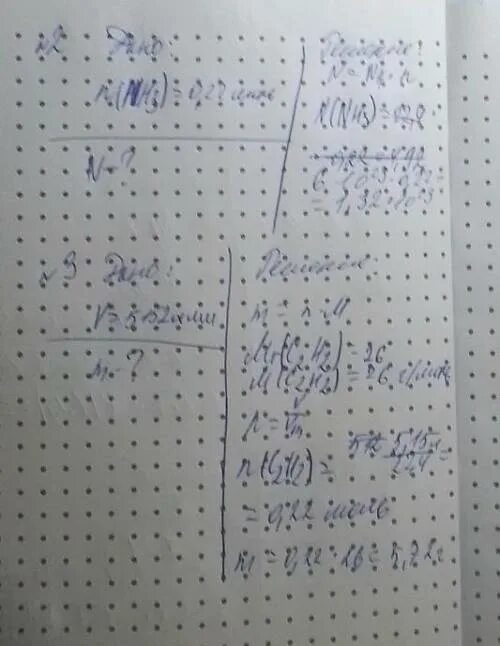 №2 Дано:
n(NH3) = 0,22 моль
N - ?
Решение:
N = Na · n
N(NH3) =
6 · 10²³ · 0,22 =
= 1,32 · 10²³
№3 Дано:
m - ?
Решение:
m = n · M
Mr(C2H2) = 26
M(C2H2) = 26 г/моль
n = V/Vm
n(C2H2) = /22,4 =
= 0,22 моль
m = 0,22 · 26 = 5,72 г